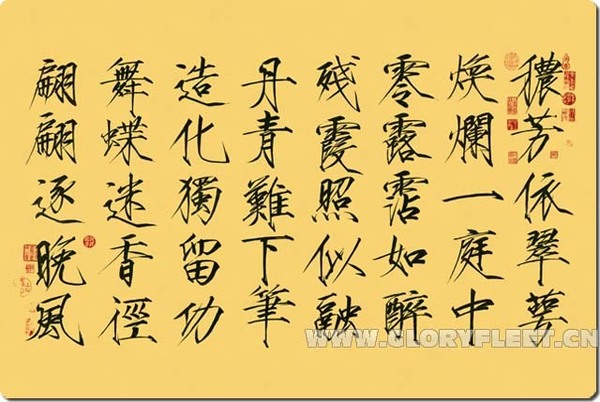 穠芳依翠萼
煥爛一庭中
零露霑如醉
殘霞照似融
丹青難下筆
造化獨留功
舞蝶迷香徑
翩翩逐晚風
WWW.GLORYFLEET.CN